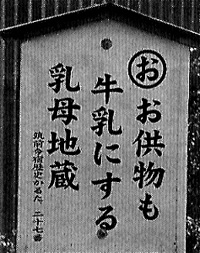 お お供物も
牛乳にする
乳母地蔵
筑前今宿歴史かるた 二十七番